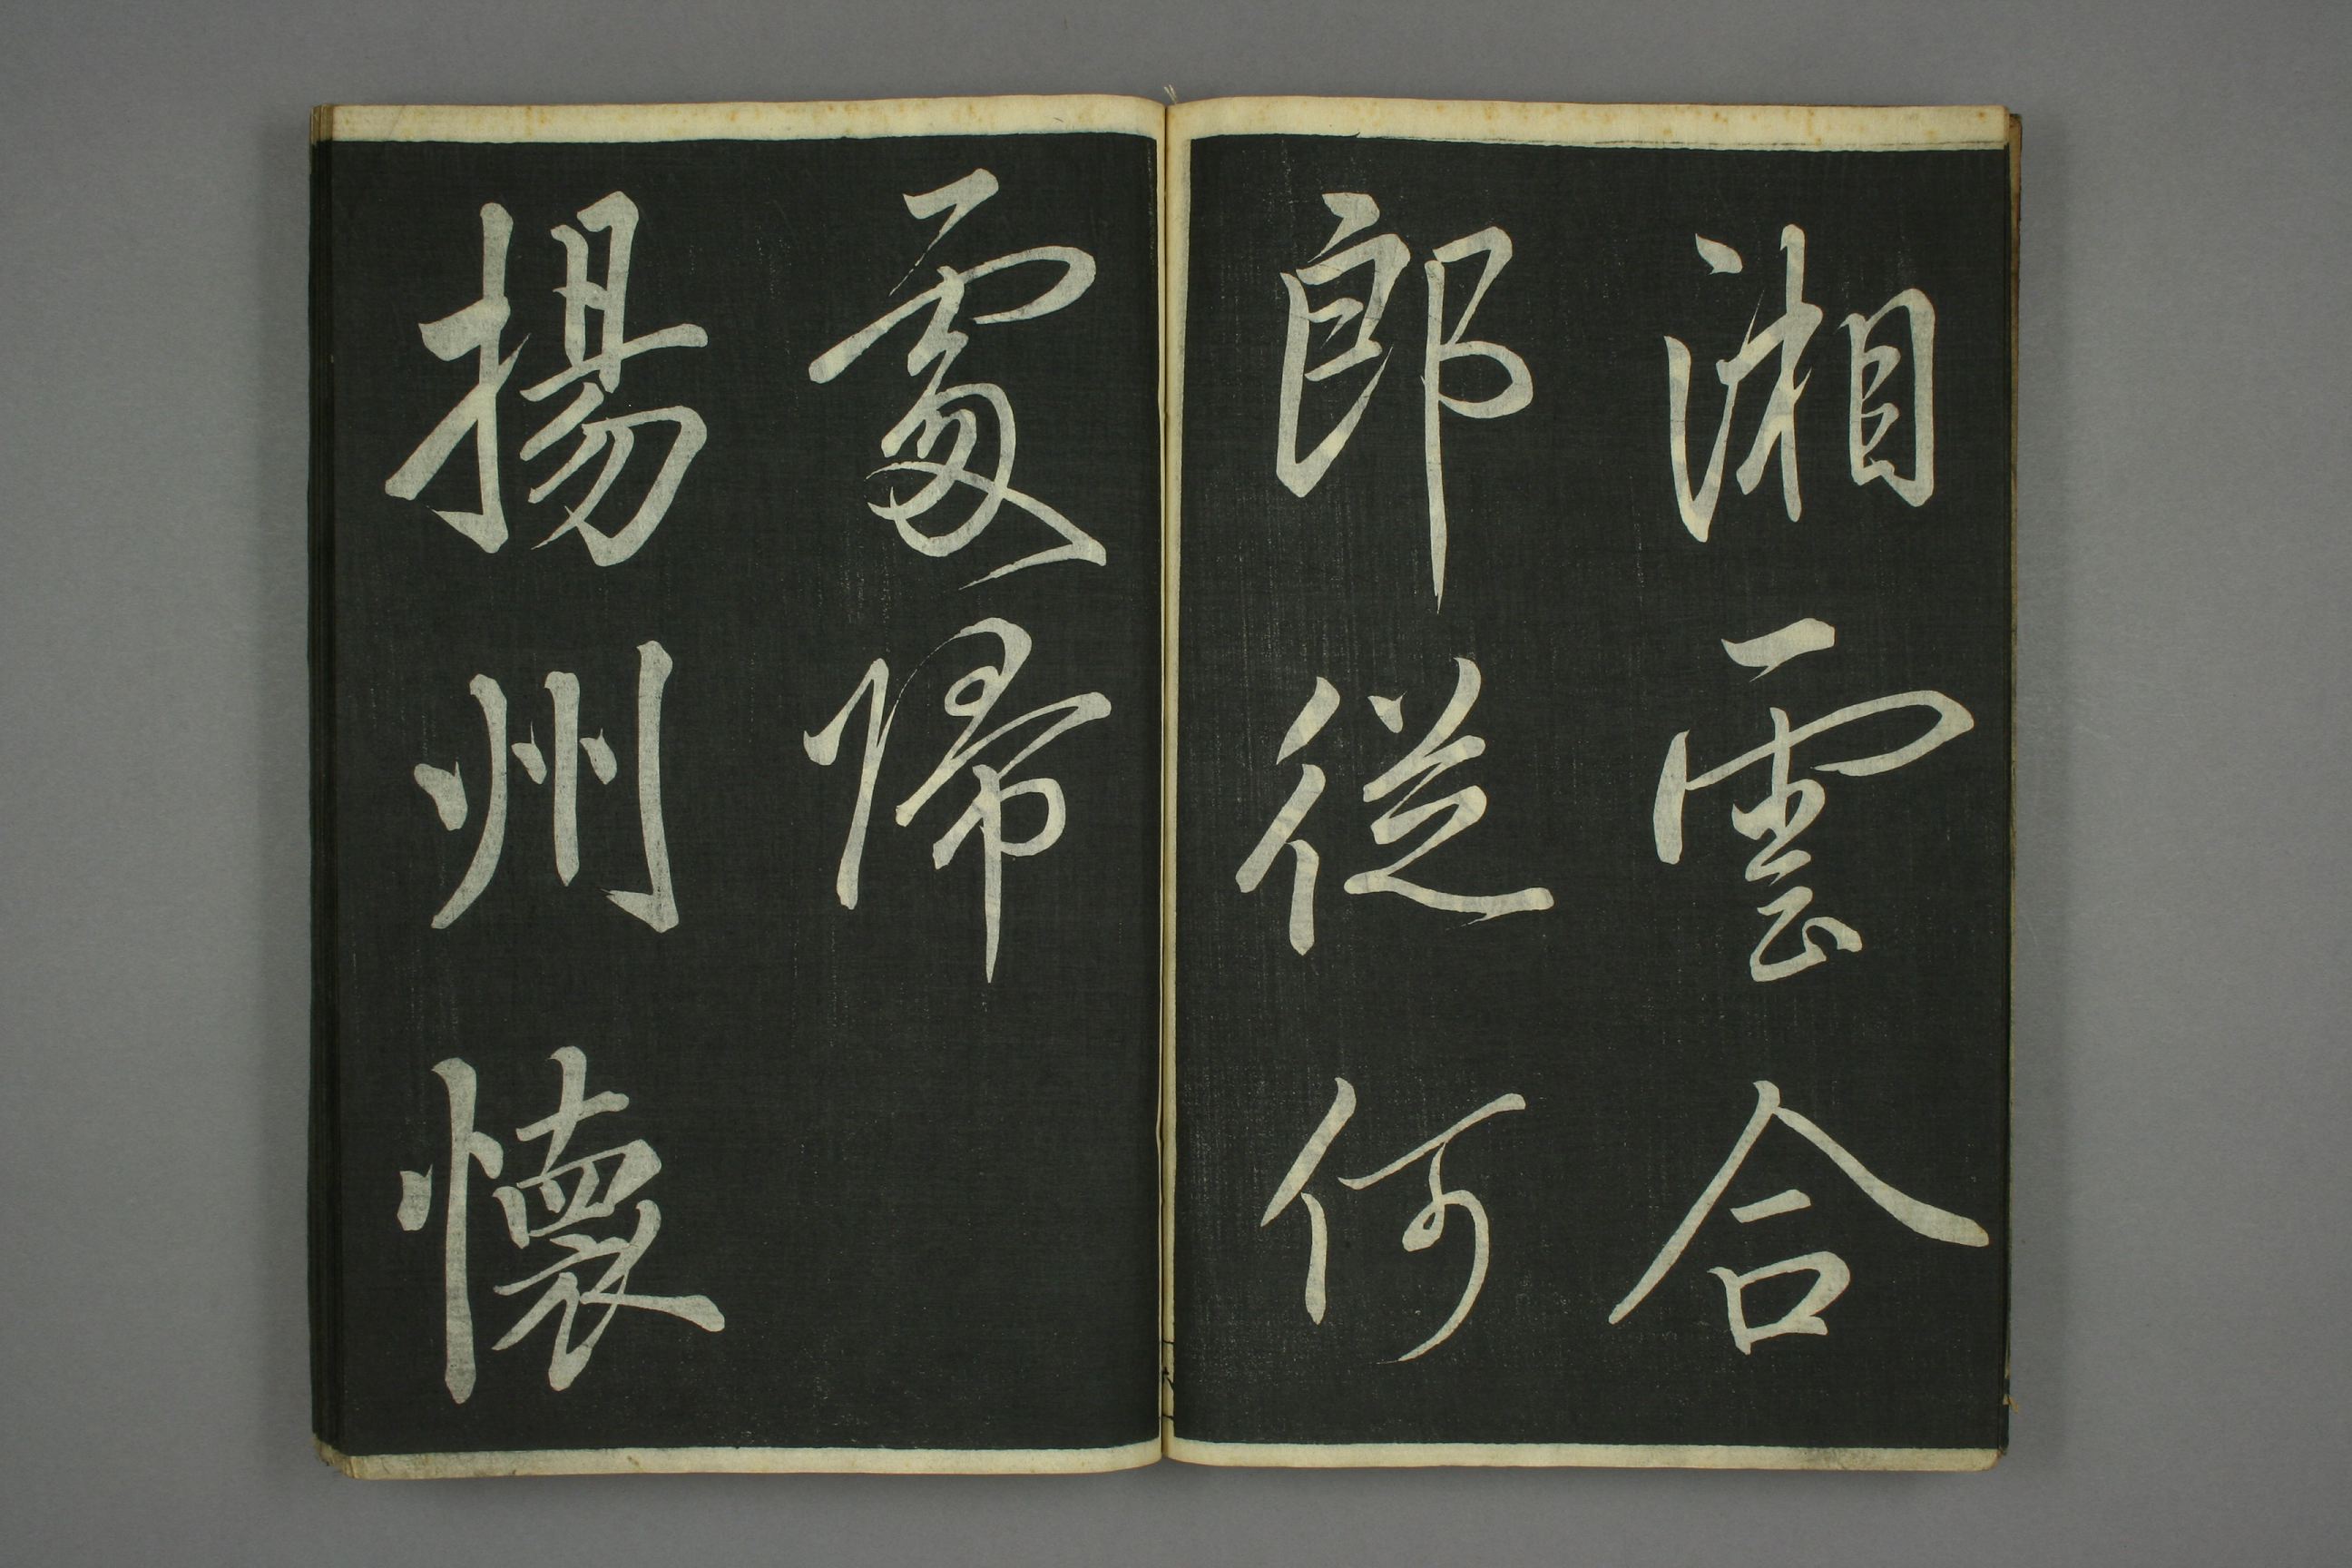 湘雲合
郎従何
處歸
揚州懷